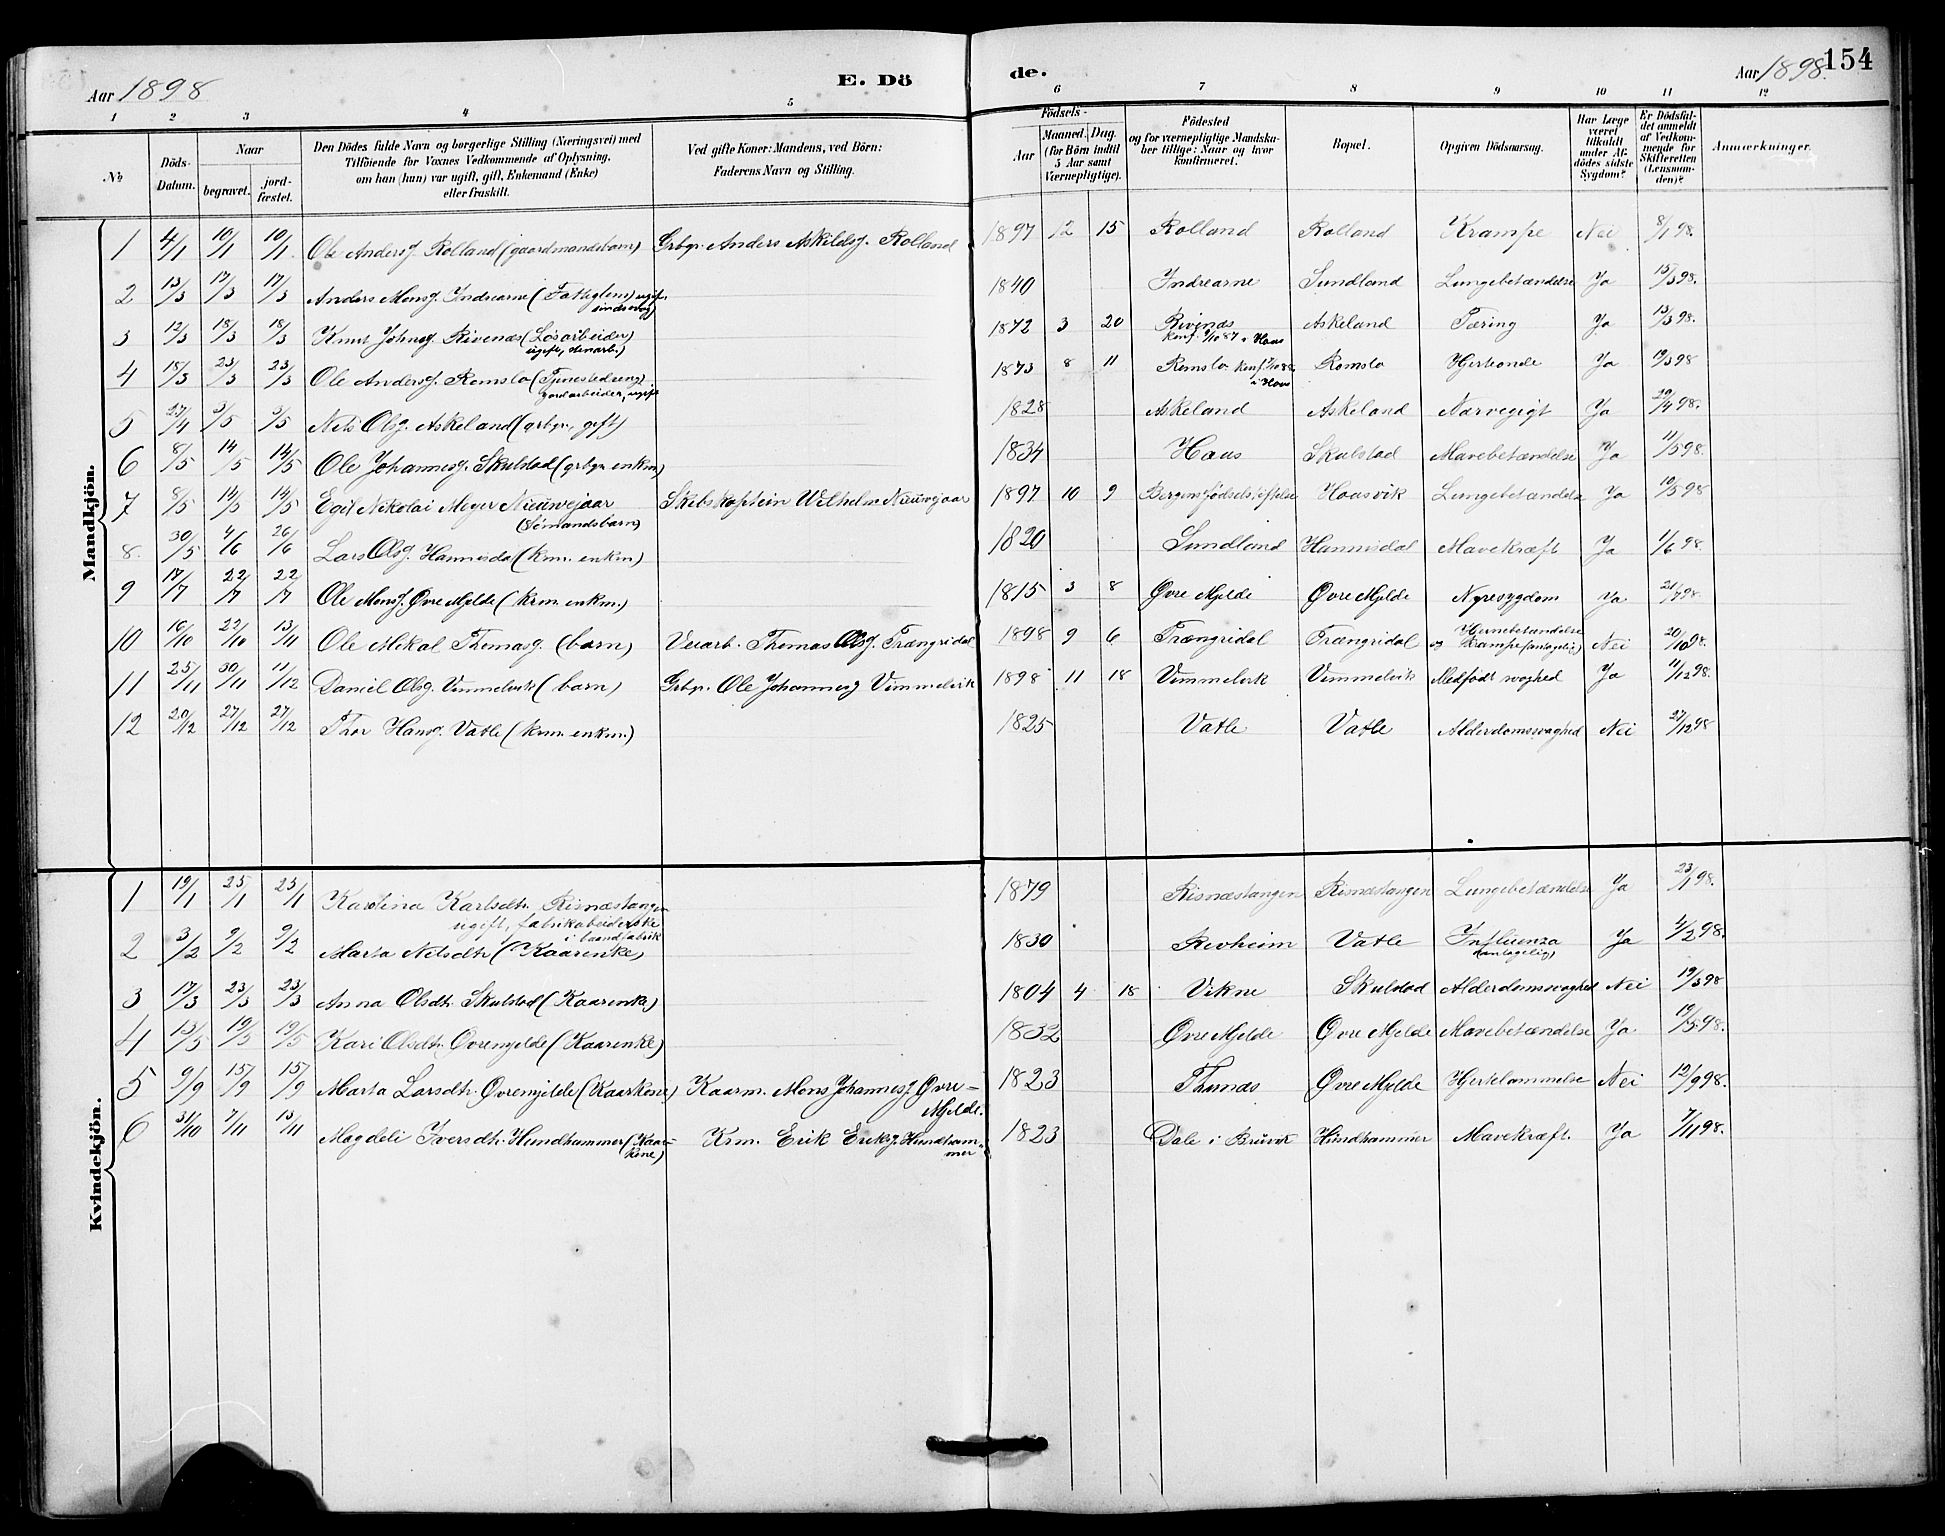 Aar 1898. E. Dö
de. Aar 1898. 154
1 2 3 4 5 6 7 8 9 10 11 12
No
Döds-Datum.
Naar begravet. jordfæstet.
Den Dödes fulde Navn og borgerlige Stilling (Næringsvei) med Tilföiende for Voxnes Vedkommende af Oplysning, om han (hun) var ugift, gift, Enkemand (Enke) eller fraskilt.
Ved gifte Koner: Mandens, ved Börn: Faderens Navn og Stilling.
Födsels- Aar Maaned. Dag. (for Börn indtil 5 Aar samt Værnepligtige).
Födested og for værnepligtige Mandskaber tillige: Naar og hvor konfirmeret.
Bopæl.
Opgiven Dödsaarsag.
Har Læge været tilkaldt under Afdödes sidste Sygdom?
Er Dödsfaldet anmeldt af Vedkommende for Skifteretten (Lensmanden)?
Anmærkninger.
Mandkjön.
1 4/1 10/1 10/1 Ole Andersg. Rolland (gaardmandsbarn) Grbgr. Anders Askildsg. Rolland 1897 12 15 Rolland Rolland Krampe Nei 8/1 98.
2 13/3 17/3 17/3 Anders Monsg. Indrearne (Fattiglem) ugift, sindssvag 1840 Indrearne Sundland Lungebetændelse Ja 15/3 98.
3 12/3 18/3 18/3 Knut Johnsg. Rivenæs (Løsarbeider) ugift, 1872 3 20 Rivenæs konf. 87 i Haus Askeland Tæring Ja 13/3 98.
4 18/3 23/3 23/3 Ole Andersg. Romslo (Tjenestedreng) jordarbeider, ugift 1873 8 11 Romslo konf. 88 i Haus Romslo Hjerteonde Ja 19/3 98
5 27/4 3/5 3/5 Nels Olsg. Askeland (grbgr., gift) 1828 Askeland Askeland Nærvegigt Ja 29/4 98.
6 8/5 14/5 14/5 Ole Johannesg. Skulstad (grbgr. enkm) 1834 Haus Skulstad Mavebetændelse Ja 11/5 98.
7 8/5 14/5 14/5 Egil Nikolai Meyer Nieuwejaar (Sømandsbarn) Skibskaptein Wilhelm Nieuwejaar 1897 10 9 Bergens fødselsstiftelse Haasvik Lungebetændelse Ja 10/5 98
8. 30/5 4/6 26/6 Lars Olsg. Hannisdal (krm. enkm) 1820 Sundland Hannisdal Mavekræft Ja 1/6 98.
9 17/7 22/7 22/7 Ole Monsg. Øvre Mjelde (krm. enkm.) 1815 3 8 Øvre Mjelde Øvre Mjelde Nyresygdom Ja 21/7 98.
10 16/10 22/10 13/11 Ole Mikal Thomasg. (barn) Veiarb. Thomas Olsg. Trængridal 1898 9 6 Trængridal Trængridal Hjernebetændelse og Krampe (antagelig) Nei 20/10 98.
11 25/11 30/11 11/12 Daniel Olsg. Vimmelvik (barn) Grbgr. Ole Johannesg Vimmelvik 1898 11 18 Vimmelvik Vimmelvik Medfødt svaghed Ja 11/12 98.
12 20/12 27/12 27/12 Thor Hansg. Vatle (krm. enkm.) 1825 Vatle Vatle Alderdomssvaghed Nei 27/12 98
Kvindekjön.
1 19/1 25/1 25/1 Karolina Karlsdtr. Risnæstangen ugift, fabrikarbeiderske i baandfabrik 1879 Risnæstangen Risnæstangen Lungebetændelse Ja 23/1 98.
2 3/2 9/2 9/2 Marta Nelsdtr (Kaarenke) 1830 Revheim Vatle Influenza (antagelig) Ja 4/2 98.
3 17/3 23/3 23/3 Anna Olsdtr. Skulstad (Kaarenke) 1804 4 18 Vikne Skulstad Alderdomssvaghed Nei 19/3 98
4 13/5 19/5 19/5 Kari Olsdtr. Øvremjelde (Kaarenke) 1832 Øvre Mjelde Øvre Mjelde Mavebetændelse Ja 19/5 98.
5 9/9 15/9 15/9 Marta Larsdtr. Øvremjelde (Kaarkone) Kaarm. Mons Johannesg. Øvre-Mjelde. 1823 Thunæs Øvre Mjelde Hjertelammelse Nei 12/9 98.
6 31/10 7/11 13/11 Magdeli Iversdtr. Hundhammer (Kaarkone) Krm. Erik Eriksg Hundhammer 1823 Dale i Bruvik Hundhammer Mavekræft. Ja 7/11 98.